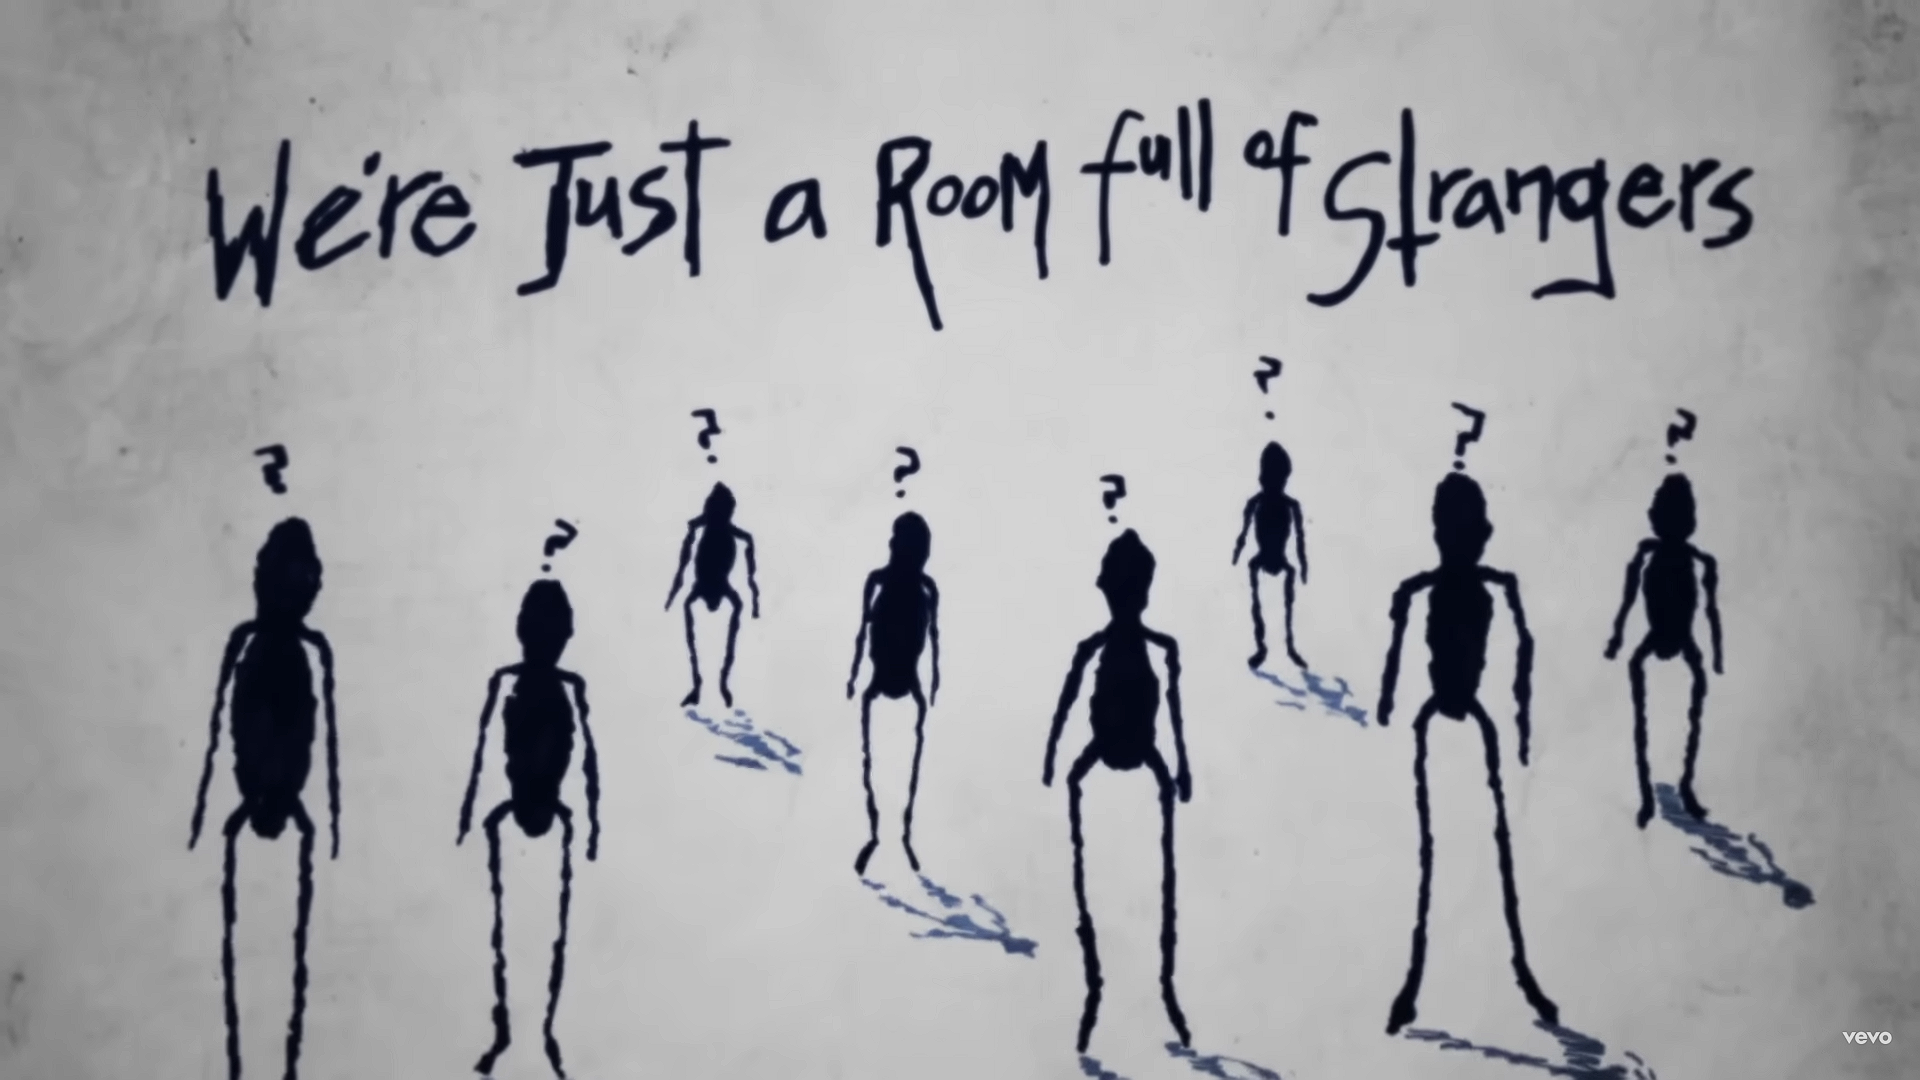 We're Just a Room full of Strangers
?
?
?
?
?
?
?
?
vevo